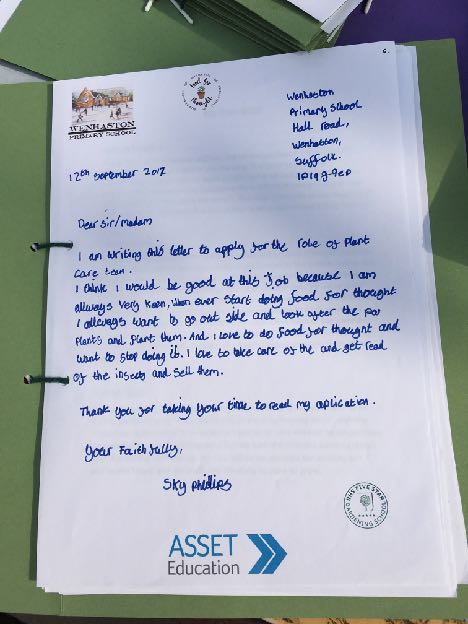 6.
WENHASTON
PRIMARY SCHOOL
food for
thought
Wenhaston
Primary School
Hall road,
Wenhaston,
Suffolk.
IP19 9EP
12th September 2017
Dear Sir/Madam
I am writing this letter to apply for the role of Plant
Care team.
I think I would be good at this Job because I am
allways very keen, when ever start doing food for thought
I allways want to go out side and look after the
Plants and Plant them. And I love to do food for thought and
want to stop doing it. I love to take care of the and get read
of the insects and sell them.
Thank you for taking your time to read my application.
Your Faithfully,
Sky Phillips
ASSET
Education